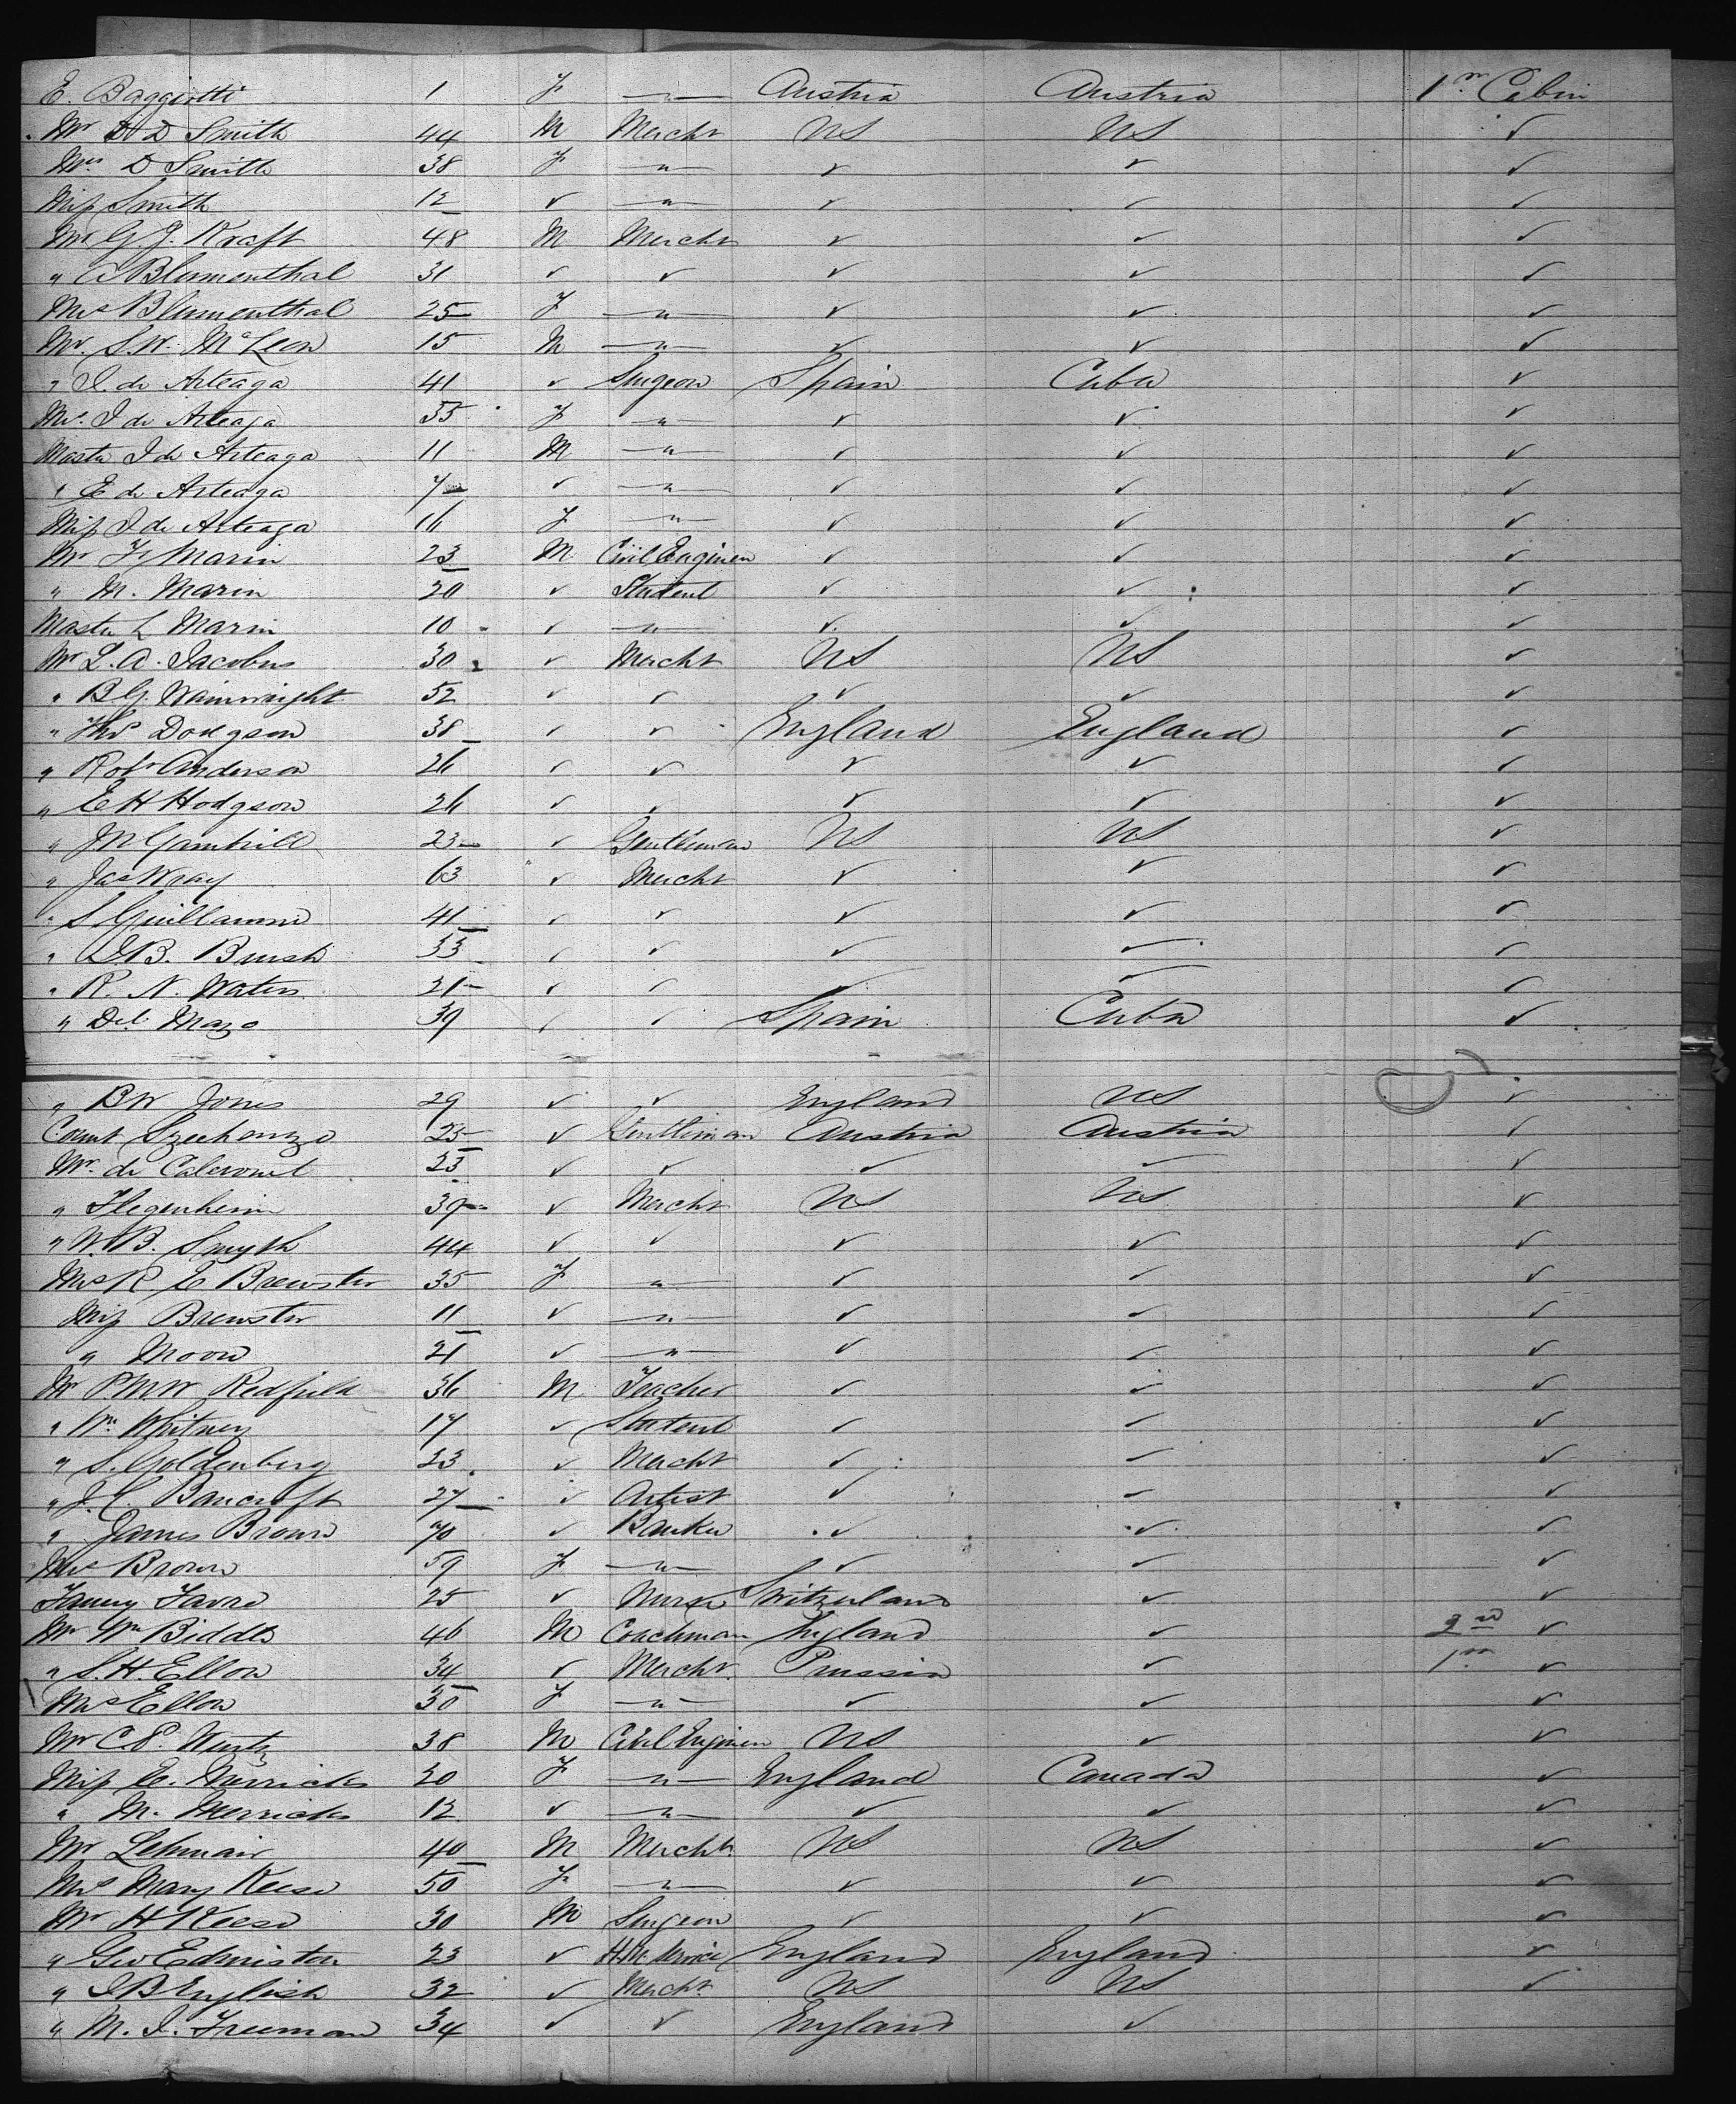 E. Baggiotti 1 F —"— Austria Austria 1st Cabin
Mr D D Smith 44 M Mercht US US ✓
Mrs D Smith 38 F —"— ✓ ✓ ✓
Miss Smith 12 ✓ —"— ✓ ✓ ✓
Mr G. J. Kraft 48 M Mercht ✓ ✓ ✓
" A Blumenthal 31 ✓ ✓ ✓ ✓ ✓
Mrs Blumenthal 25 F —"— ✓ ✓ ✓
Mr. S. W. McLeon 15 M —"— ✓ ✓ ✓
" I. de Arteaga 41 ✓ Surgeon Spain Cuba ✓
Mrs. I de Arteaga 35 F —"— ✓ ✓ ✓
Master I de Arteaga 11 M —"— ✓ ✓ ✓
" E de Arteaga 7 ✓ —"— ✓ ✓ ✓
Miss I de Arteaga 16 F —"— ✓ ✓ ✓
Mr F Marin 23 M Civil Engineer ✓ ✓ ✓
" M. Marin 20 ✓ Student ✓ ✓ ✓
Master L Marin 10 ✓ —"— ✓ ✓ ✓
Mr L. A. Jacobus 30 ✓ Mercht US US ✓
" B G. Wainwright 52 ✓ ✓ ✓ ✓ ✓
" Thos Dodgson 38 ✓ ✓ England England ✓
" Robt Anderson 26 ✓ ✓ ✓ ✓ ✓
" E H Hodgson 26 ✓ ✓ ✓ ✓ ✓
" J M Gambrill 23 ✓ Gentleman US US ✓
" Jas Wray 63 ✓ Mercht ✓ ✓ ✓
" S Guillaume 41 ✓ ✓ ✓ ✓ ✓
" I. B. Brush 33 ✓ ✓ ✓ ✓ ✓
" R. N. Waters 21 ✓ ✓ ✓ ✓ ✓
" Del Mazo 39 ✓ ✓ Spain Cuba ✓
" B W Jones 29 ✓ ✓ England US ✓
Count Szechenyi 25 ✓ Gentleman Austria Austria ✓
Mr. de 23 ✓ ✓ ✓ ✓ ✓
" Flegenheim 39 ✓ Mercht US US ✓
" W. B. Smyth 44 ✓ ✓ ✓ ✓ ✓
Mrs R. E Brewster 35 F —"— ✓ ✓ ✓
Miss Brewster 11 ✓ —"— ✓ ✓ ✓
" Moore 21 ✓ —"— ✓ ✓ ✓
Mr P. M W Redfield 36 M Teacher ✓ ✓ ✓
" Wm. Whitney 17 ✓ Student ✓ ✓ ✓
" S. Goldenberg 23 ✓ Mercht ✓ ✓ ✓
" J. C. Bancroft 27 ✓ Artist ✓ ✓ ✓
" James Brown 70 ✓ Banker ✓ ✓ ✓
Mrs Brown 59 F —"— ✓ ✓ ✓
Fanny Favre 25 ✓ Nurse Switzerland ✓ ✓
Mr Wm Biddle 46 M Coachman England ✓ 2nd ✓
" S. H. Ellon 34 ✓ Mercht. Prussia ✓ 1st ✓
Mrs Ellon 30 F —"— ✓ ✓ ✓
Mr C. P. Wurtz 38 M Civil Engineer US ✓ ✓
Miss E. Merricks 20 F —"— England Canada ✓
" M. Merricks 12 ✓ —"— ✓ ✓ ✓
Mr Lehmair 40 M Mercht. US US ✓
Mrs Mary Keese 50 F —"— ✓ ✓ ✓
Mr H Keese 30 M Surgeon ✓ ✓ ✓
" Geo Edmiston 23 ✓ H. M. Service England England ✓
" I B English 32 ✓ Mercht. US US ✓
" M. I. Freeman 34 ✓ ✓ England ✓